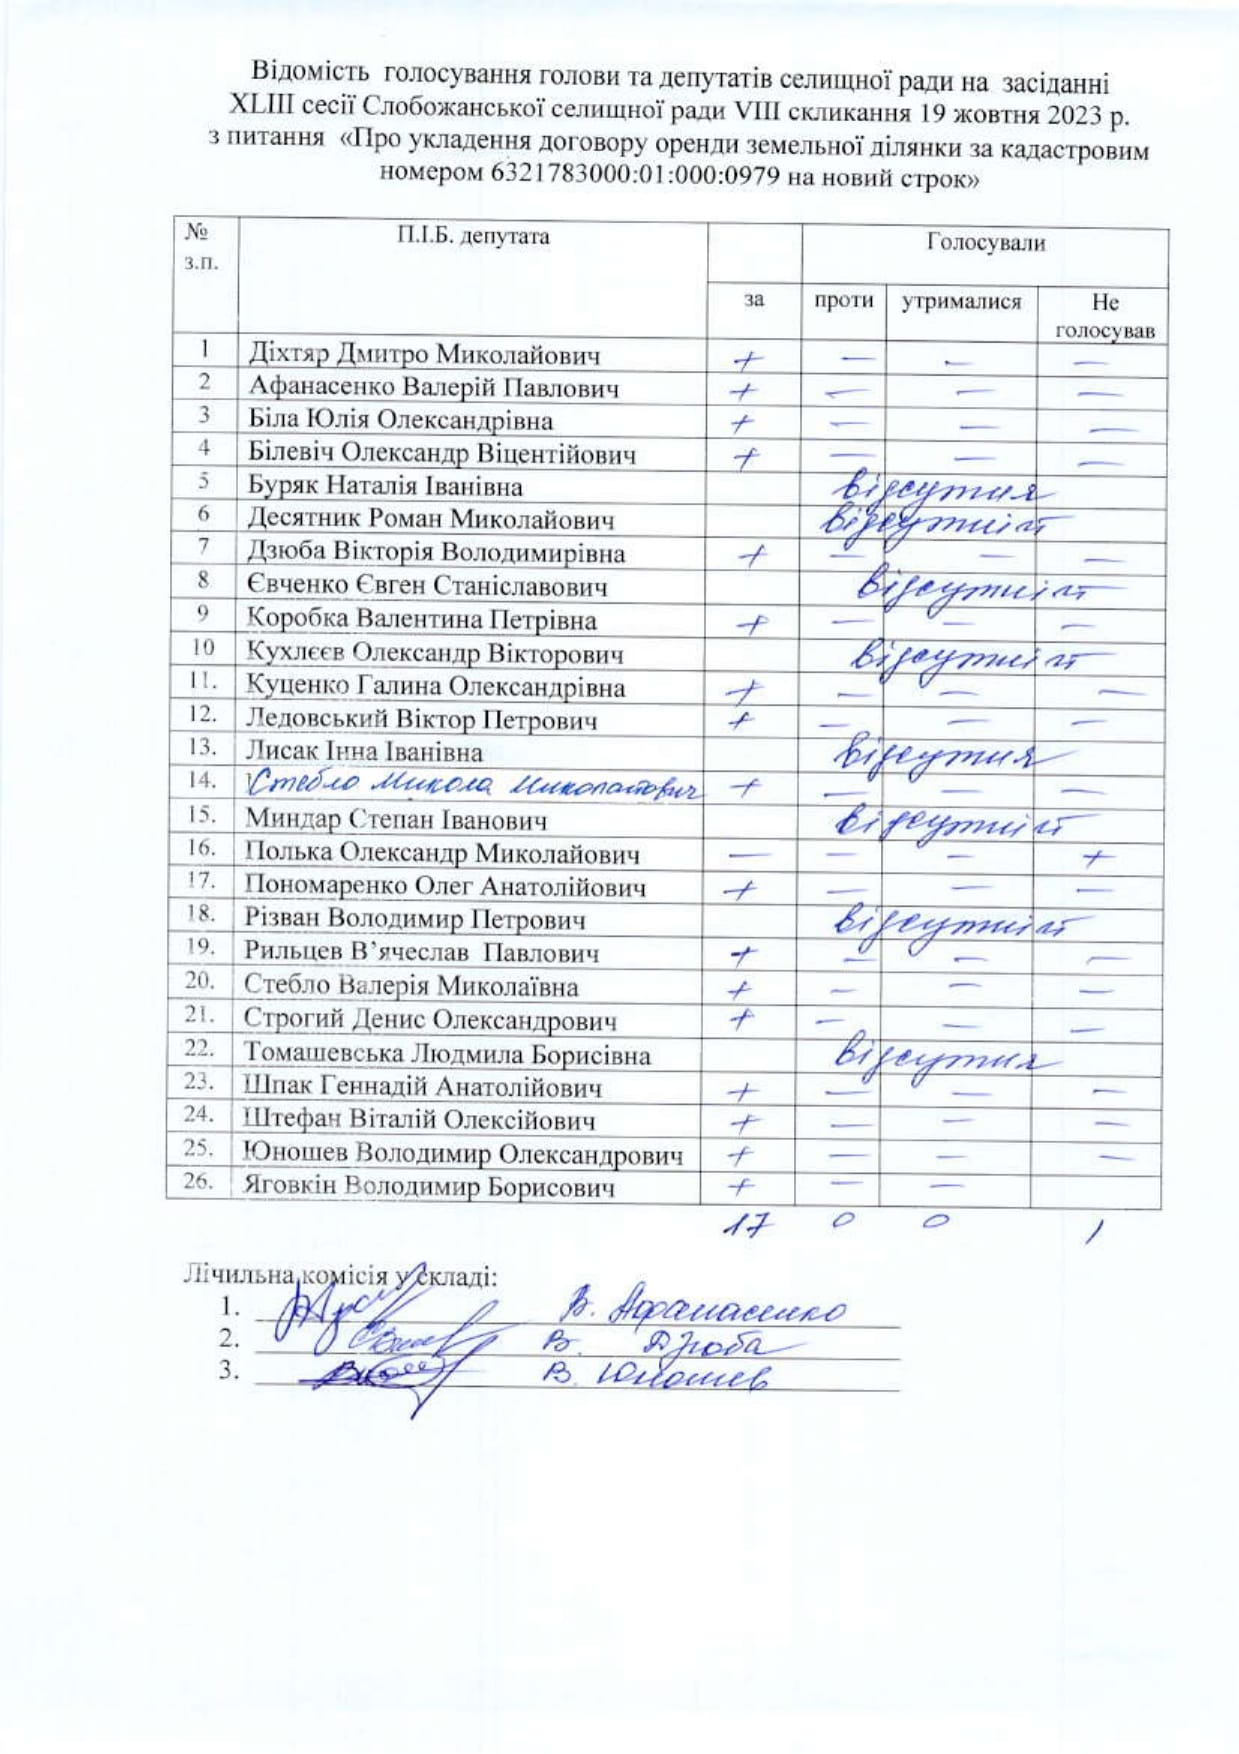 Відомість голосування голови та депутатів селищної ради на засіданні
XLIII сесії Слобожанської селищної ради VIII скликання 19 жовтня 2023 р.
з питання «Про укладення договору оренди земельної ділянки за кадастровим
номером 6321783000:01:000:0979 на новий строк»
№ з.п. П.І.Б. депутата Голосували
за проти утрималися Не голосував
1 Діхтяр Дмитро Миколайович + — — —
2 Афанасенко Валерій Павлович + — — —
3 Біла Юлія Олександрівна + — — —
4 Білевіч Олександр Віцентійович + — — —
5 Буряк Наталія Іванівна відсутня
6 Десятник Роман Миколайович відсутній
7 Дзюба Вікторія Володимирівна + — — —
8 Євченко Євген Станіславович відсутній
9 Коробка Валентина Петрівна + — — —
10 Кухлєєв Олександр Вікторович відсутній
11. Куценко Галина Олександрівна + — — —
12. Ледовський Віктор Петрович + — — —
13. Лисак Інна Іванівна відсутня
14. Стебло Микола Миколайович + — — —
15. Миндар Степан Іванович відсутній
16. Полька Олександр Миколайович — — — +
17. Пономаренко Олег Анатолійович + — — —
18. Різван Володимир Петрович відсутній
19. Рильцев В’ячеслав Павлович + — — —
20. Стебло Валерія Миколаївна + — — —
21. Строгий Денис Олександрович + — — —
22. Томашевська Людмила Борисівна відсутня
23. Шпак Геннадій Анатолійович + — — —
24. Штефан Віталій Олексійович + — — —
25. Юношев Володимир Олександрович + — — —
26. Яговкін Володимир Борисович + — —
17 0 0 1
Лічильна комісія у складі:
1. В. Афанасенко
2. В. Дзюба
3. В. Юношев